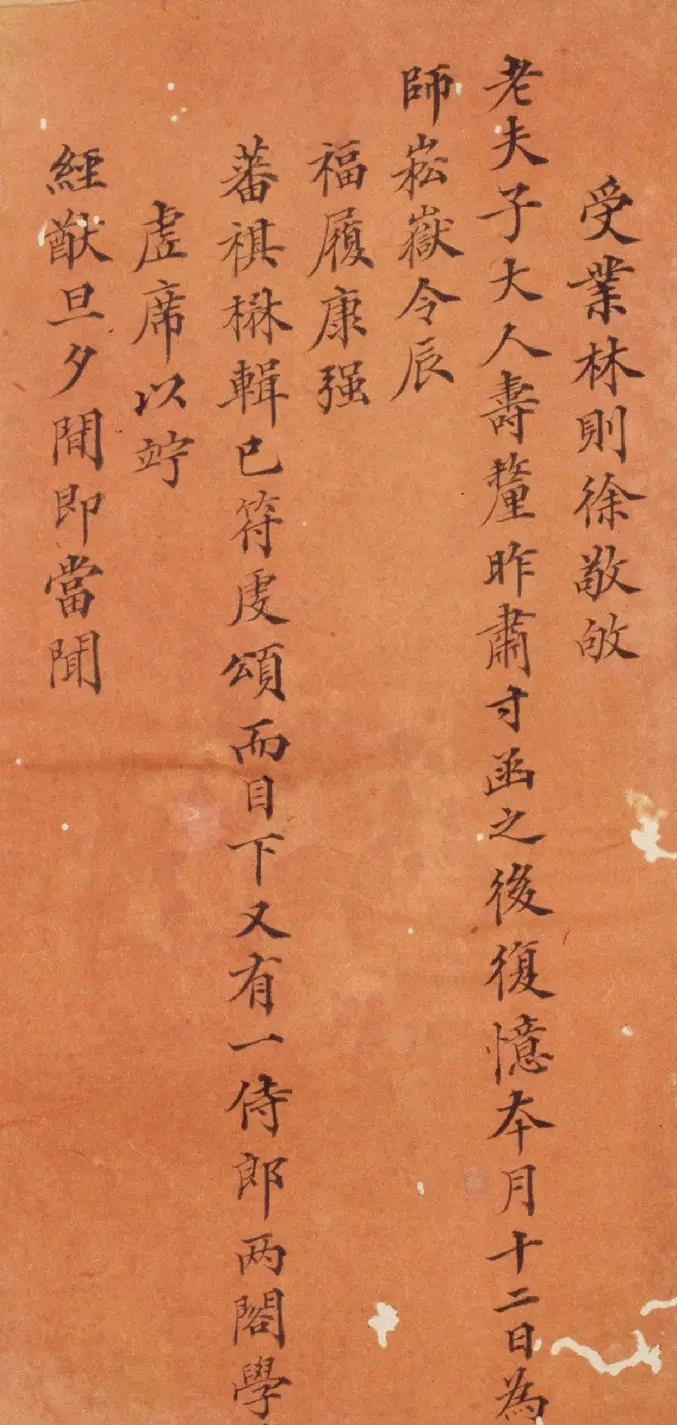 受業林則徐敬啟
老夫子大人壽釐昨肅寸函之後復憶本月十二日為
師崧嶽令辰
福履康强
蕃祺楙輯已符虔頌而目下又有一侍郎两閣學
虚席以竚
經猷旦夕間即當聞